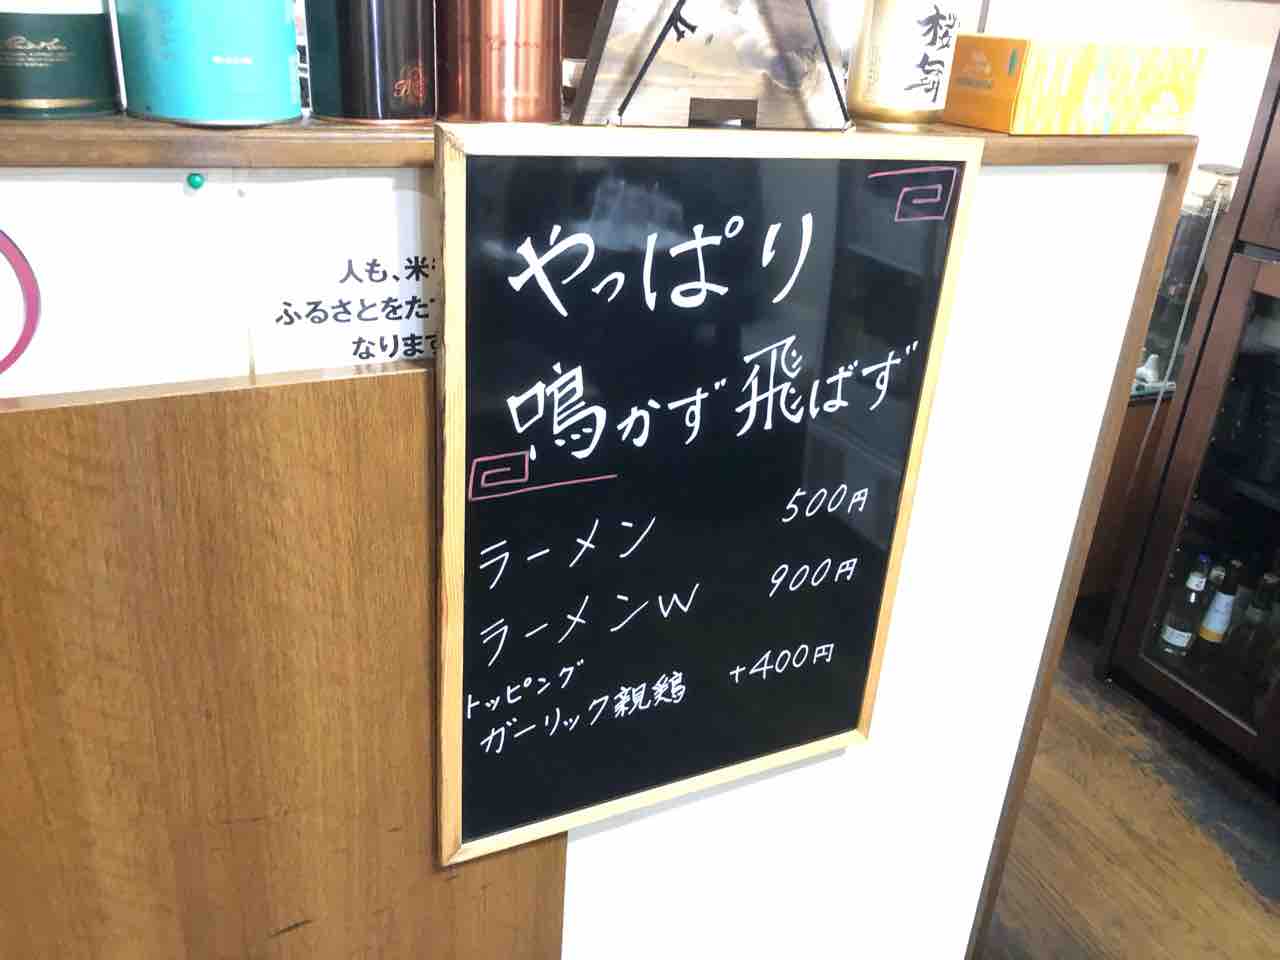 桜年
人も、米
ふるさとをた
なります
やっぱり
鳴かず飛ばず
ラーメン 500円
ラーメンW 900円
トッピング
ガーリック親鶏 +400円